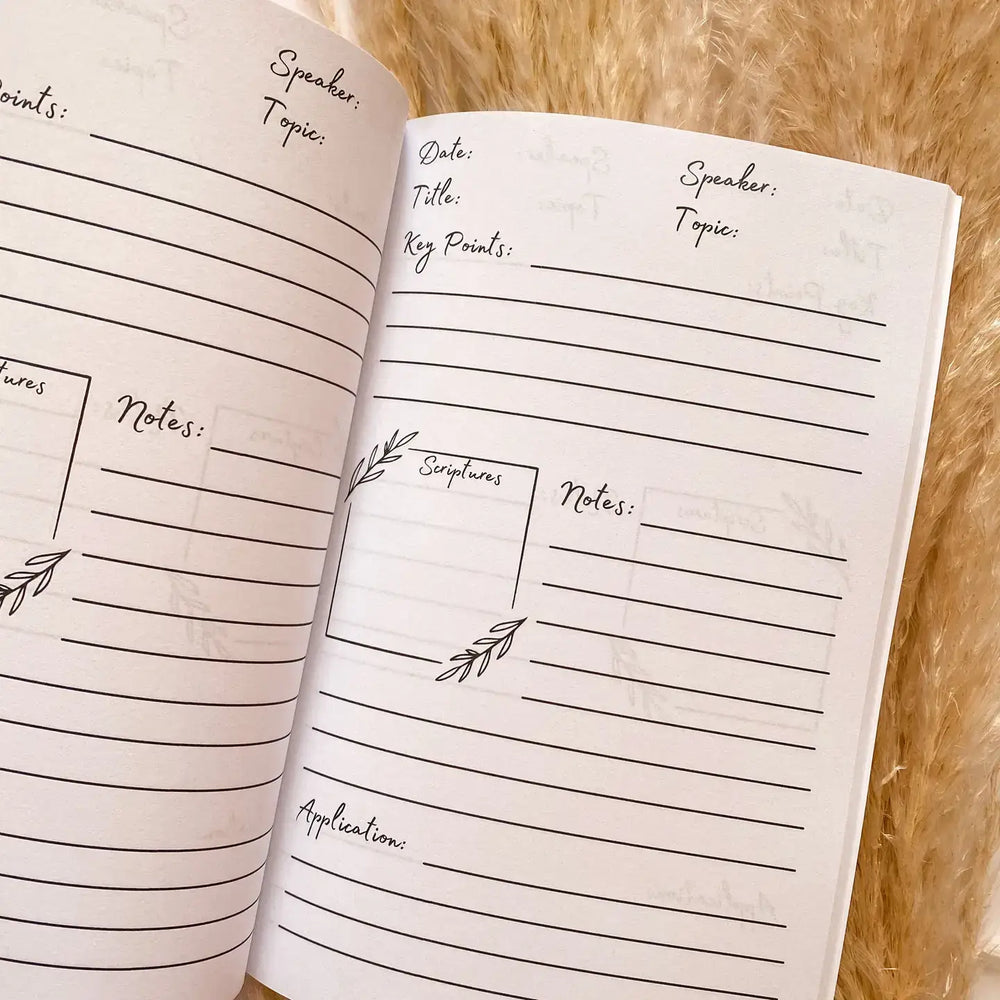 Speaker:
Topic:
Points:
Scriptures
Notes:
Date:
Speaker:
Title:
Topic:
Key Points:
Scriptures
Notes:
Application: